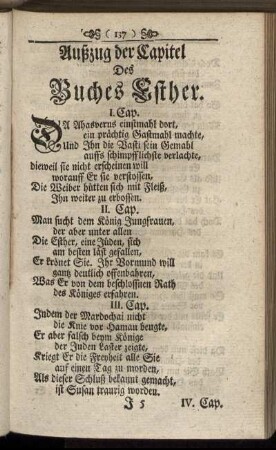 ( 137 )
Außzug der Capitel
Des
Buches Esther.
I. Cap.
DA Ahasverus einstmahl dort,
ein prächtig Gastmahl machte,
Und Ihn die Vasti sein Gemahl
auffs schimpfflichste verlachte,
dieweil sie nicht erscheinen will
worauff Er sie verstossen.
Die Weiber hütten sich mit Fleiß,
Ihn weiter zu erbossen.
II. Cap.
Man sucht dem König Jungfrauen,
der aber unter allen
Die Esther, eine Jüden, sich
am besten läst gefallen,
Er krönet Sie. Ihr Vormund will
gantz deutlich offenbahren,
Was Er von dem beschloßnen Rath
des Königes erfahren.
III. Cap.
Indem der Mardochai nicht
die Knie vor Haman beugte,
Er aber falsch beym Könige
der Juden Laster zeigte,
Kriegt Er die Freyheit alle Sie
auf einen Tag zu morden,
Als dieser Schluß bekannt gemacht,
ist Susan traurig worden.
J 5 IV. Cap.